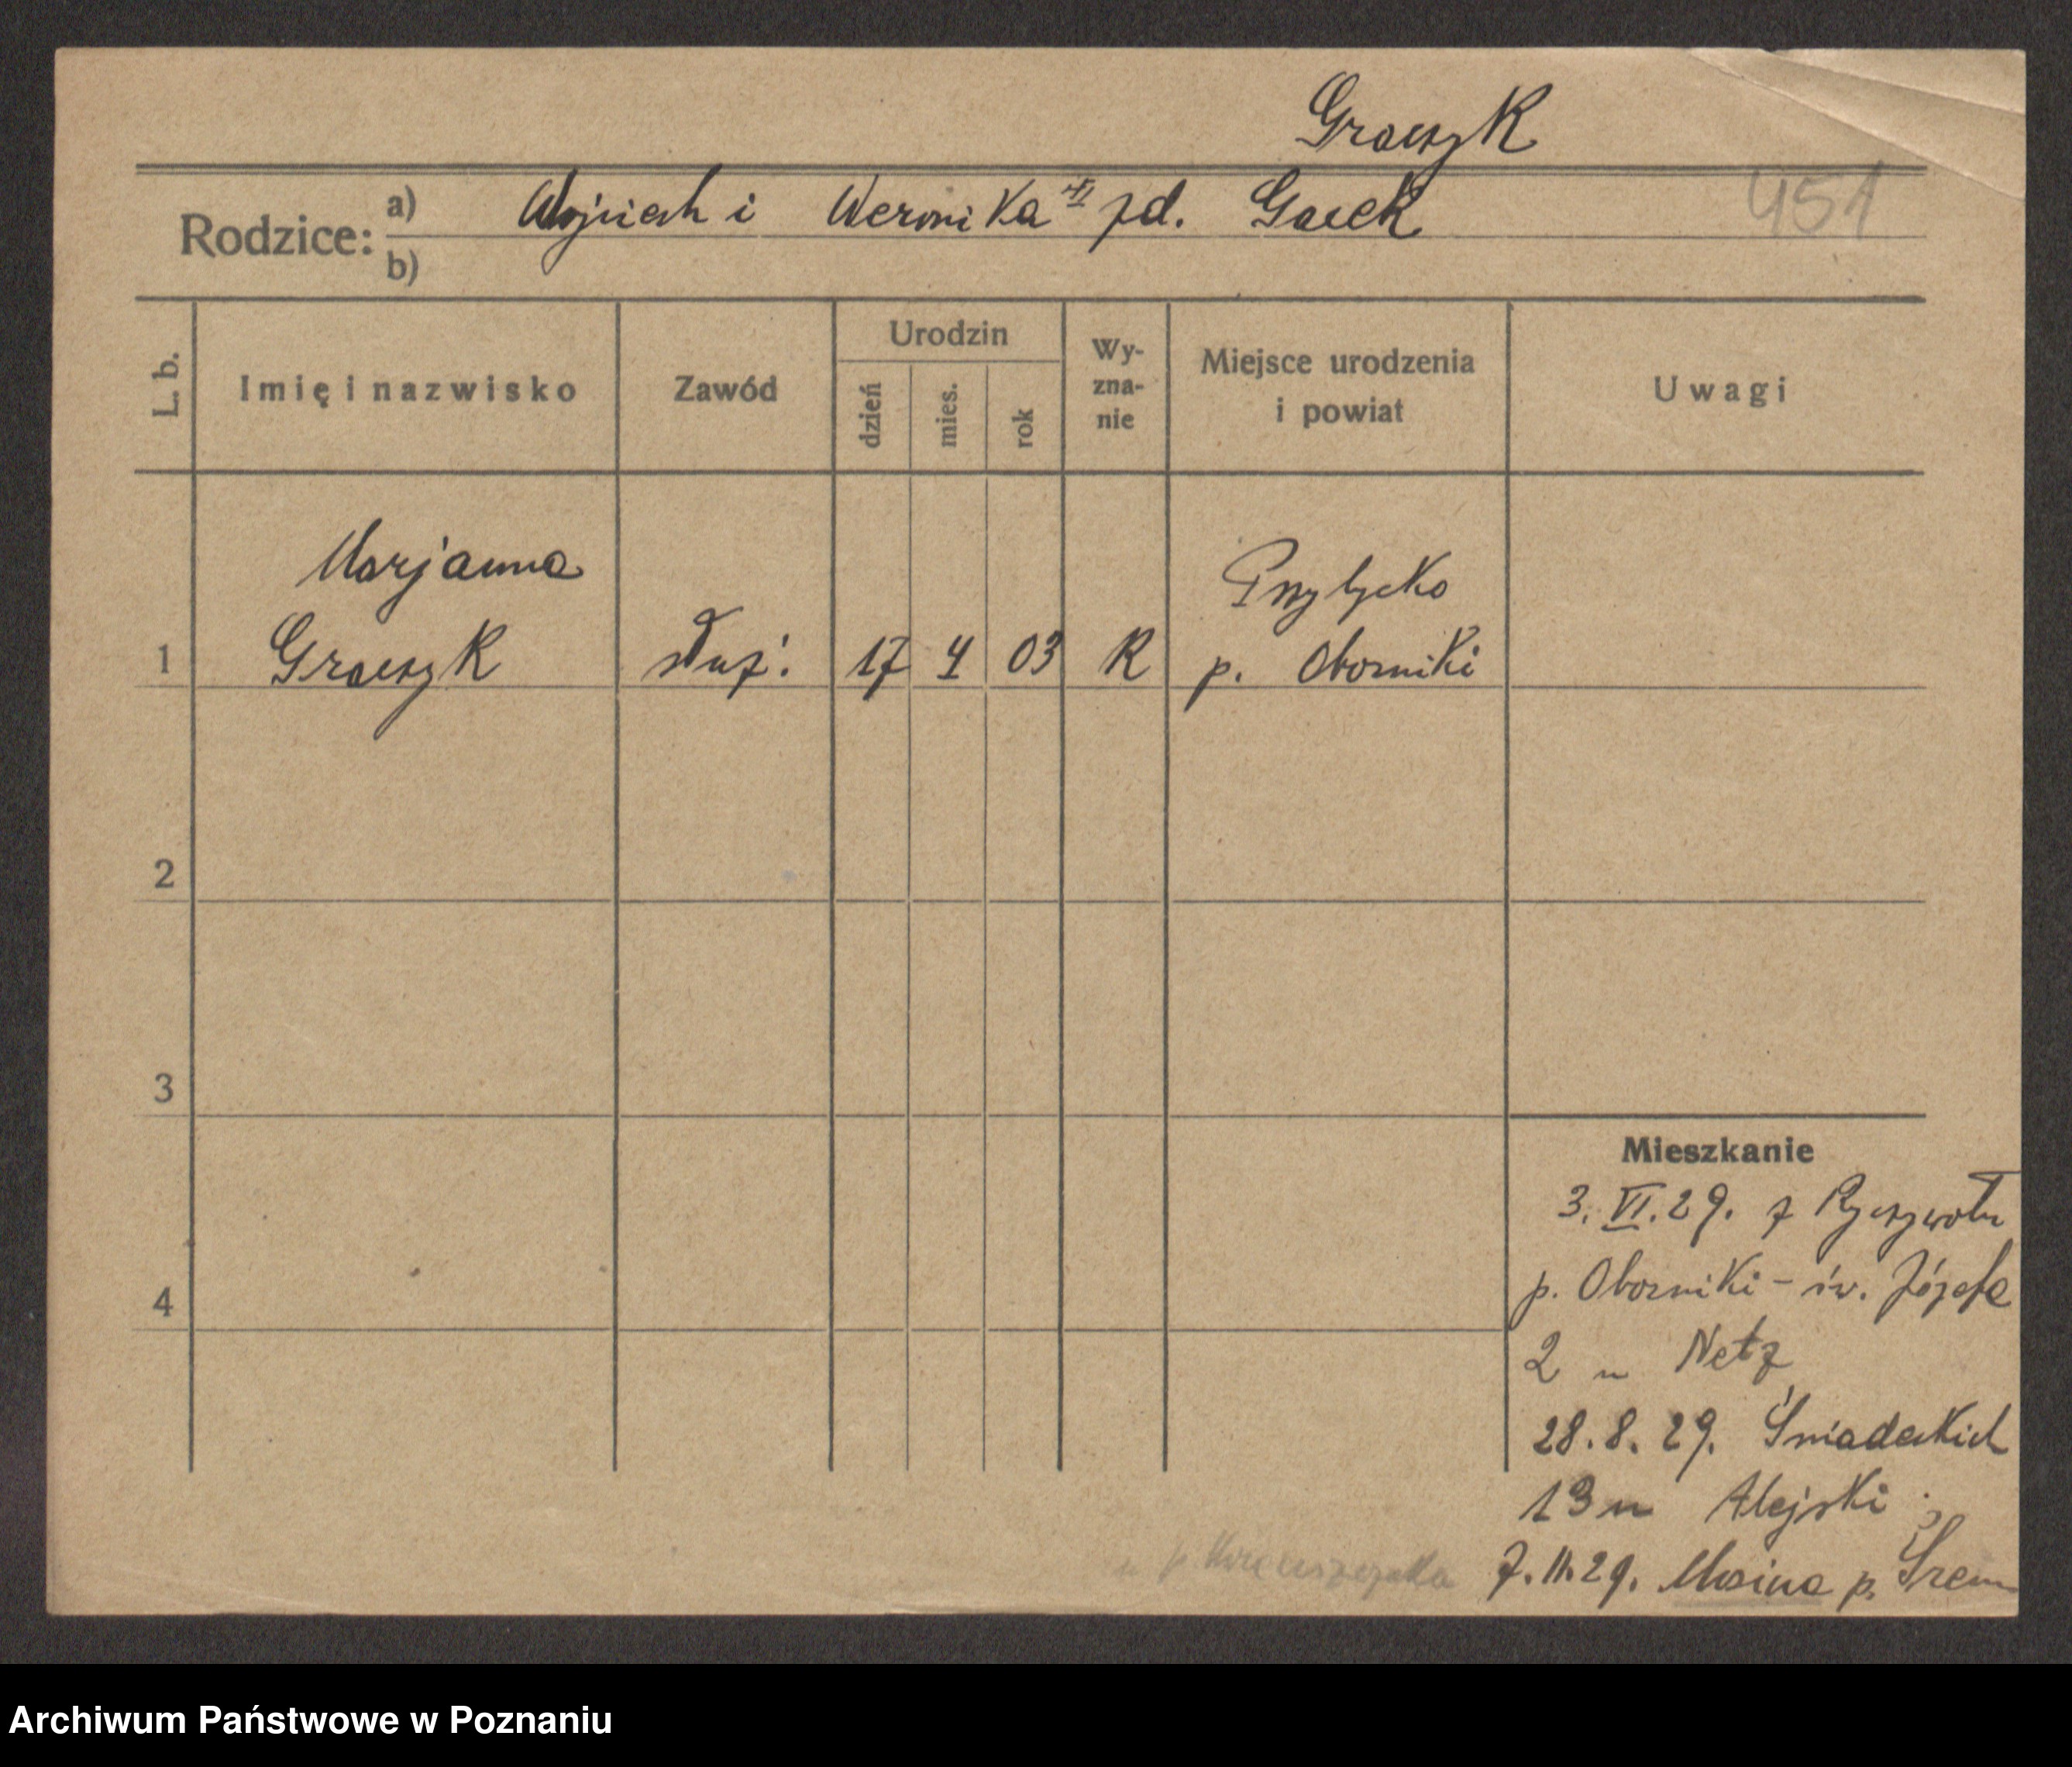 Graczyk
Rodzice: a) Wojciech i Weronika zd. Gacek
451
b)
L. b.
Imię i nazwisko
Zawód
Urodzin
dzień
mies.
rok
Wy-
zna-
nie
Miejsce urodzenia
i powiat
Uwagi
Marjanna
Przybyczko
1 Graczyk służ. 17 4 03 R p. Oborniki
2
3
4
Mieszkanie
3. VI. 29. z Ryczywołu
p. Oborniki – św. Józefa
2 u Netz
28. 8. 29. Śniadeckich
13 u Alejski
7. 11. 29. Mosina p. Śrem
Archiwum Państwowe w Poznaniu